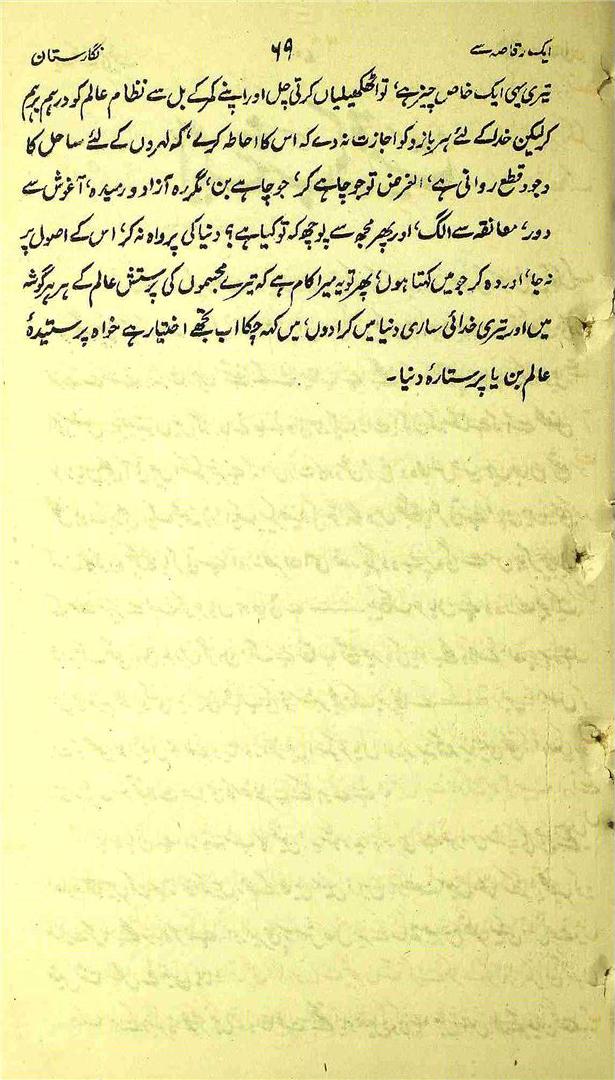 ایک رقاصہ سے ۶۹ نگارستان
تیری یہی ایک خاص چیز ہے، تو اٹھکھیلیاں کرتی چل اور اپنے کمر کے بل سے نظام عالم کو درہم برہم
کر لیکن خدا کے لئے ہر بازو کو اجازت نہ دے کہ اس کا احاطہ کرلے، کہ لہروں کے لئے ساحل کا
وجود قطع روانی ہے، الغرض تو جو چاہے کر، جو چاہے بن، مگر رہ آزاد و رمیدہ، آغوش سے
دور، معانقہ سے الگ، اور پھر مجھ سے پوچھ کہ تو کیا ہے؟ دنیا کی پرواہ نہ کر، اس کے اصول پر
نہ جا، اور وہ کر جو میں کہتا ہوں، پھر تو یہ میرا کام ہے کہ تیرے مجسموں کی پرستش عالم کے ہر ہر گوشہ
میں اور تیری خدائی ساری دنیا میں کرا دوں، میں کہہ چکا اب تجھے اختیار ہے خواہ پرستیدۂ
عالم بن یا پرستارۂ دنیا۔